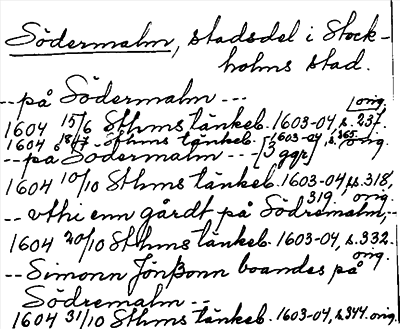 Södermalm, stadsdel i Stock-
holms stad.
-- på Södermalm --- orig.
1604 15/6 Sthms tänkeb. 1603-04, s. 237.
1604 18/7 Sthms tänkeb. 1603-04, s. 365 orig.
-- på Södermalm --- [3 ggr]
1604 10/10 Sthms tänkeb. 1603-04, ss. 318,
319, orig.
-- vthi enn gårdt på Södremalm, --
1604 20/10 Sthms tänkeb. 1603-04, s. 332.
orig.
-- Simonn Jönßonn boandes på
Södremalm --
1604 31/10 Sthms tänkeb. 1603-04, s. 344. orig.